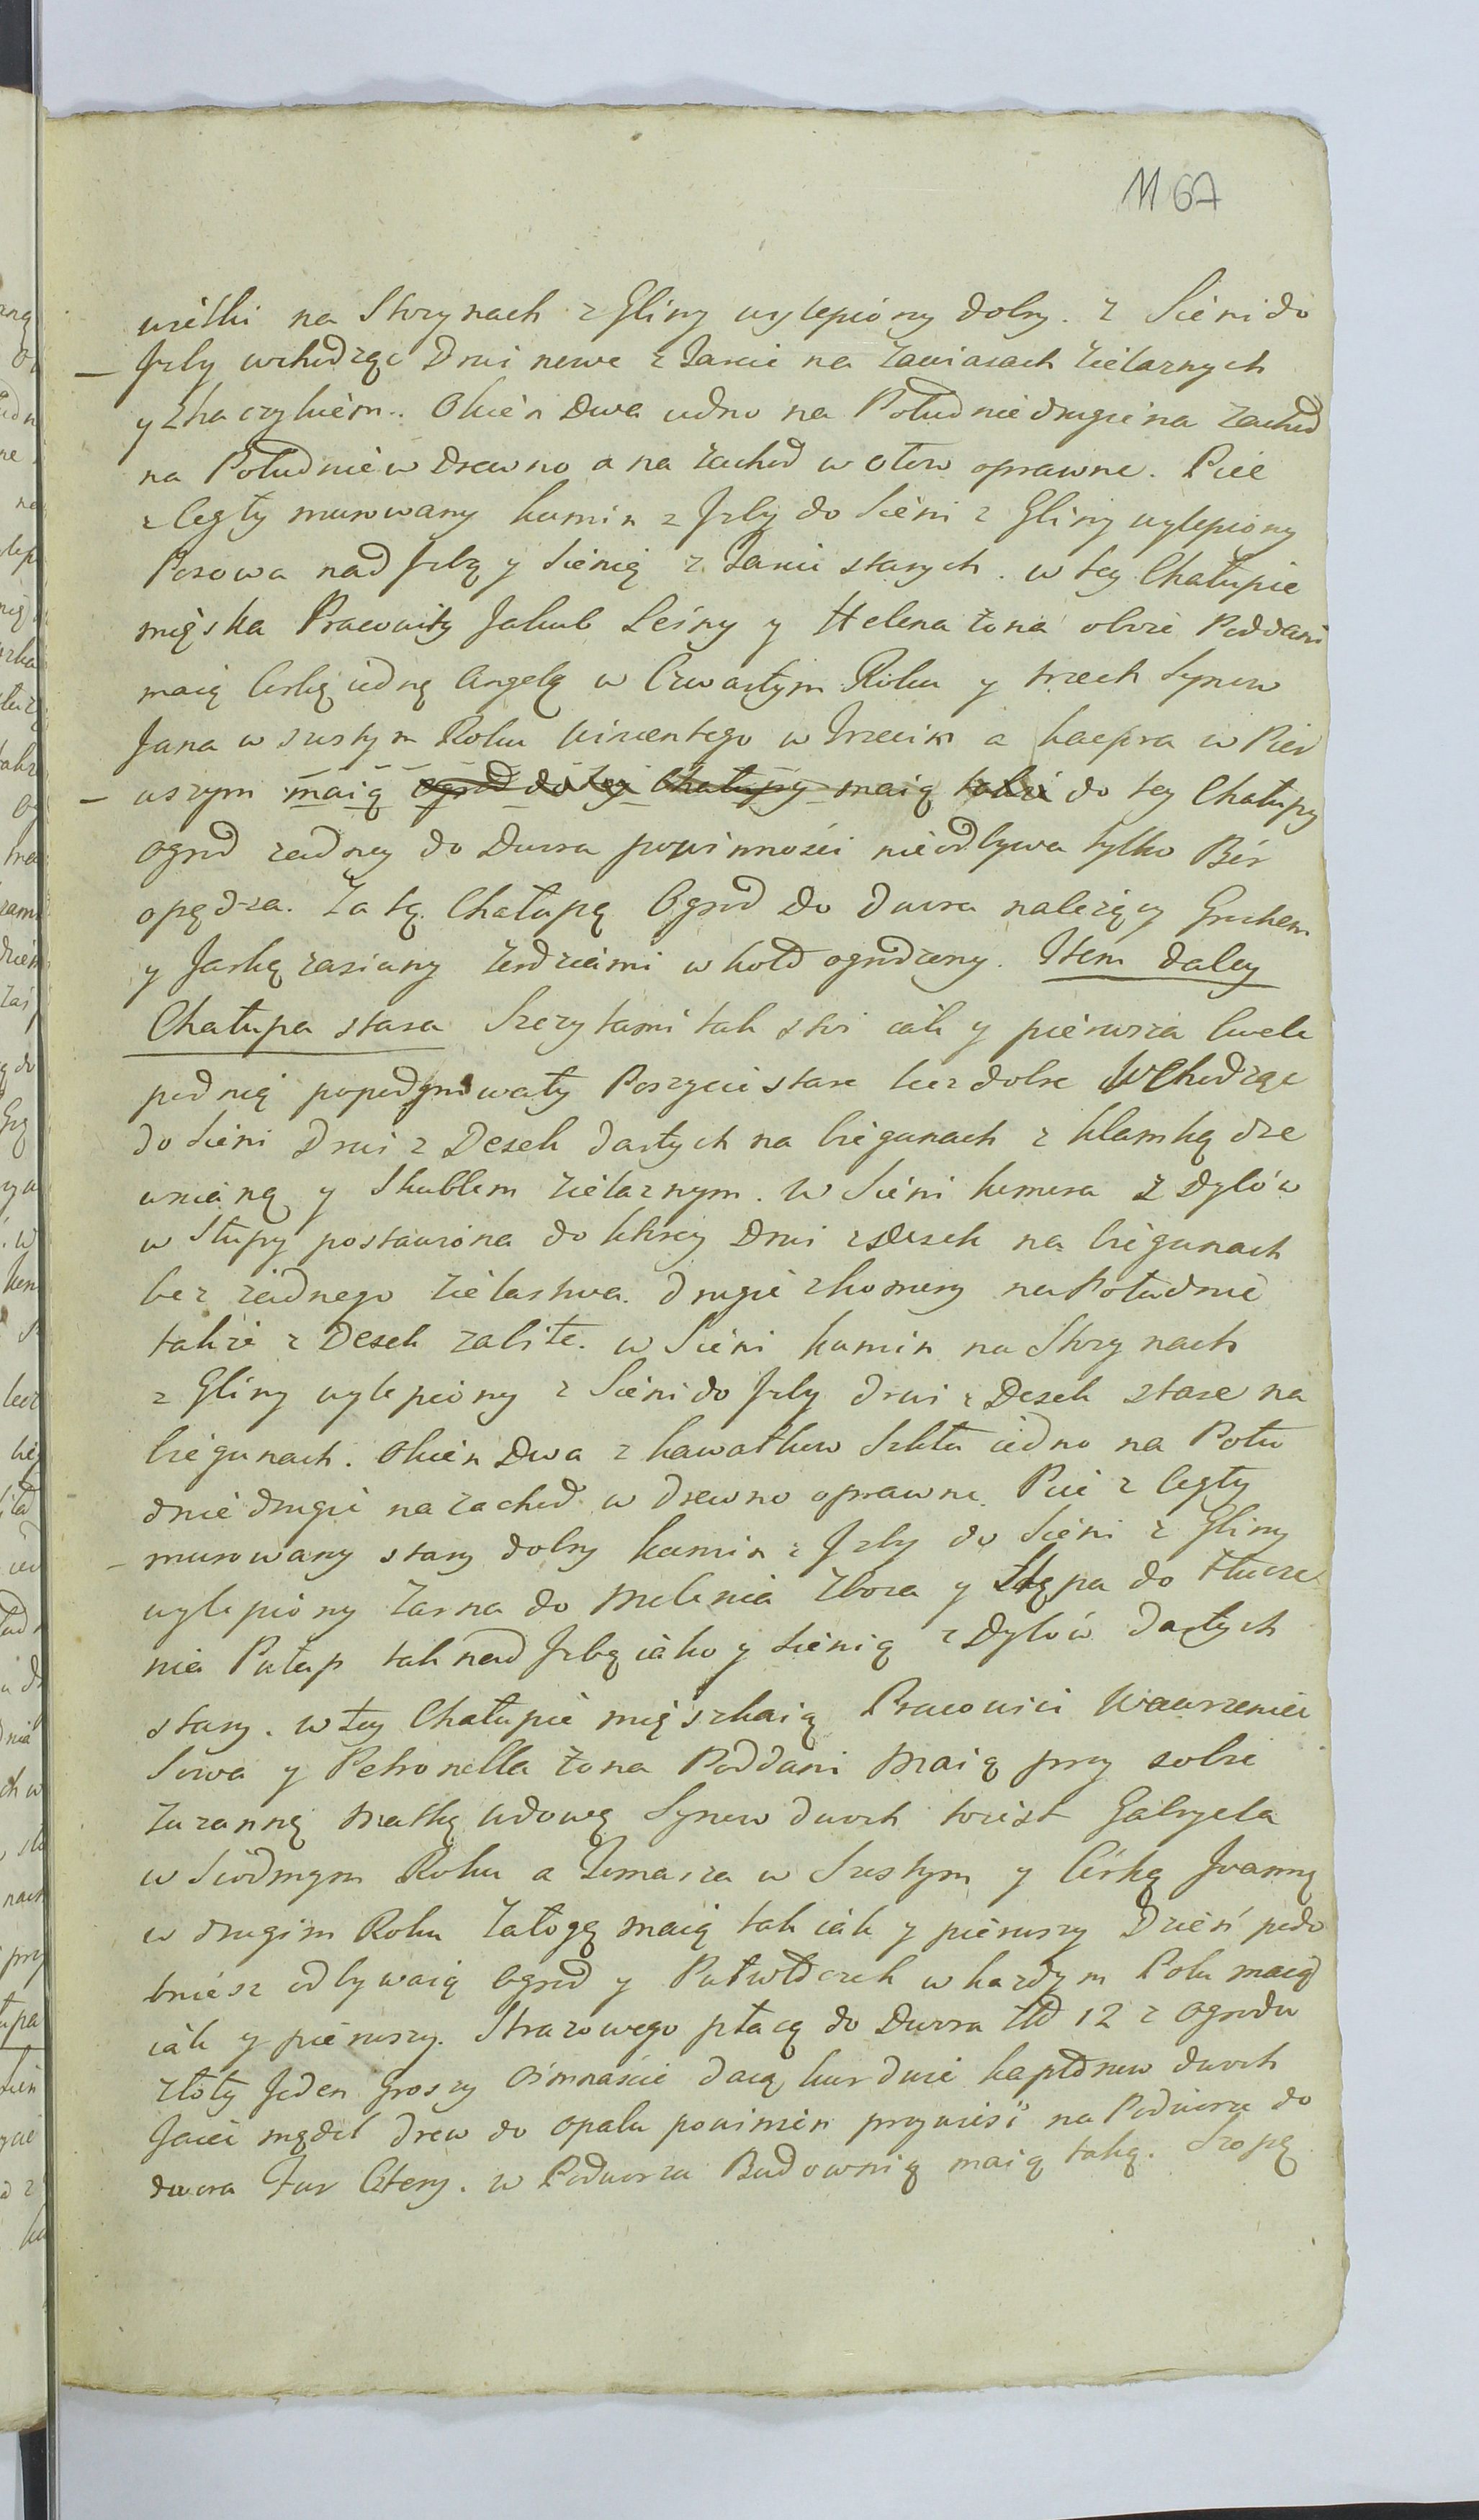 11 67
na Strzynach z Gliny wylepiony dobry. z Sieni do
Jzby wchodząc Drwi nowe z Tarcic na zawiasach żielaznych
y Zhaczykiem. Okien Dwa iedno na Południe drugie na zachod
na Południe w Drewno a na zachod w otow oprawne. Piec
z Cegły murowany komin z Jzby do Sieni z Gliny wylepiony
Posowa nad Jzbą y Sienią z Tarcic starych. w tey Chałupie
mięska Pracowity Jakub Leśny y Helena żona oboie Poddani
maią Corkę iedną Angelę w Czwartym Roku y trzech Synow
Jana w szostym Roku Wincentego w Trzecim a Kacpra w Pier
wszym maią ogrod do tey Chałupy maią tobie do tey Chałupy
Ogrod żadney do Dwora powinności nieodbywa tylko Bór
opędza. Za tą Chałupą Ogrod do Dwora należący Grochem
y Jarką zasiany żerdziami wkoło ogrodzony. Item daley
Chałupa stara Szczytami tak stoi iak y pierwsza Cwele
pod nią popodgniwały Poszycie stare lecz dobre Wchodząc
do Sieni Drwi z Desek dartych na biegunach z klamką dre
wnianą y Skoblem żielaznym. W Sieni komora z dylów
w Słupy postawiona do ktorey Drwi z Desek na biegunach
bez żadnego żielastwa. drugie z komory na Południe
także z Desek zabite. w Sieni komin na Strzynach
z Gliny wylepiony z Sieni do Jzby drwi z Desek stare na
biegunach. Okien Dwa z kawałkow Szkła iedno na Połu
dnie drugie na zachod w drewno oprawne. Piec z Cegły
murowany stary dobry komin z Jzby do Sieni z Gliny
wylepiony Żarna do Mełenia Zboża y Stępa do Tłucze
nia Pułap tak nad Jzbą iako y Sienią z Dylów dartych
stary. w tey Chałupie mięszkaią Pracowici Wawrzeniec
Sowa y Petronella żona Poddani Maią przy sobie
Zuzannę Matkę wdowę Synow dwoch toiest Gabryela
w Siódmym Roku a Tomasza w Szostym y Córkę Joannę
w drugim Roku Załogę maią tak iak y pierwszy Dzień podo
bniesz odbywaią Ogrod y Pułwłoczek w każdym Polu maią
iak y pierwszy. Strazowego płacą do Dwora Złł 12 z ogrodu
złoty Jeden groszy Ośmnaście daią kur dwie kapłonow dwoch
Jaiec mędel drew do opału powinien przywieść na Podworze do
dwora Fur Cztery. w Podworzu Budownią maią taką. Szopę